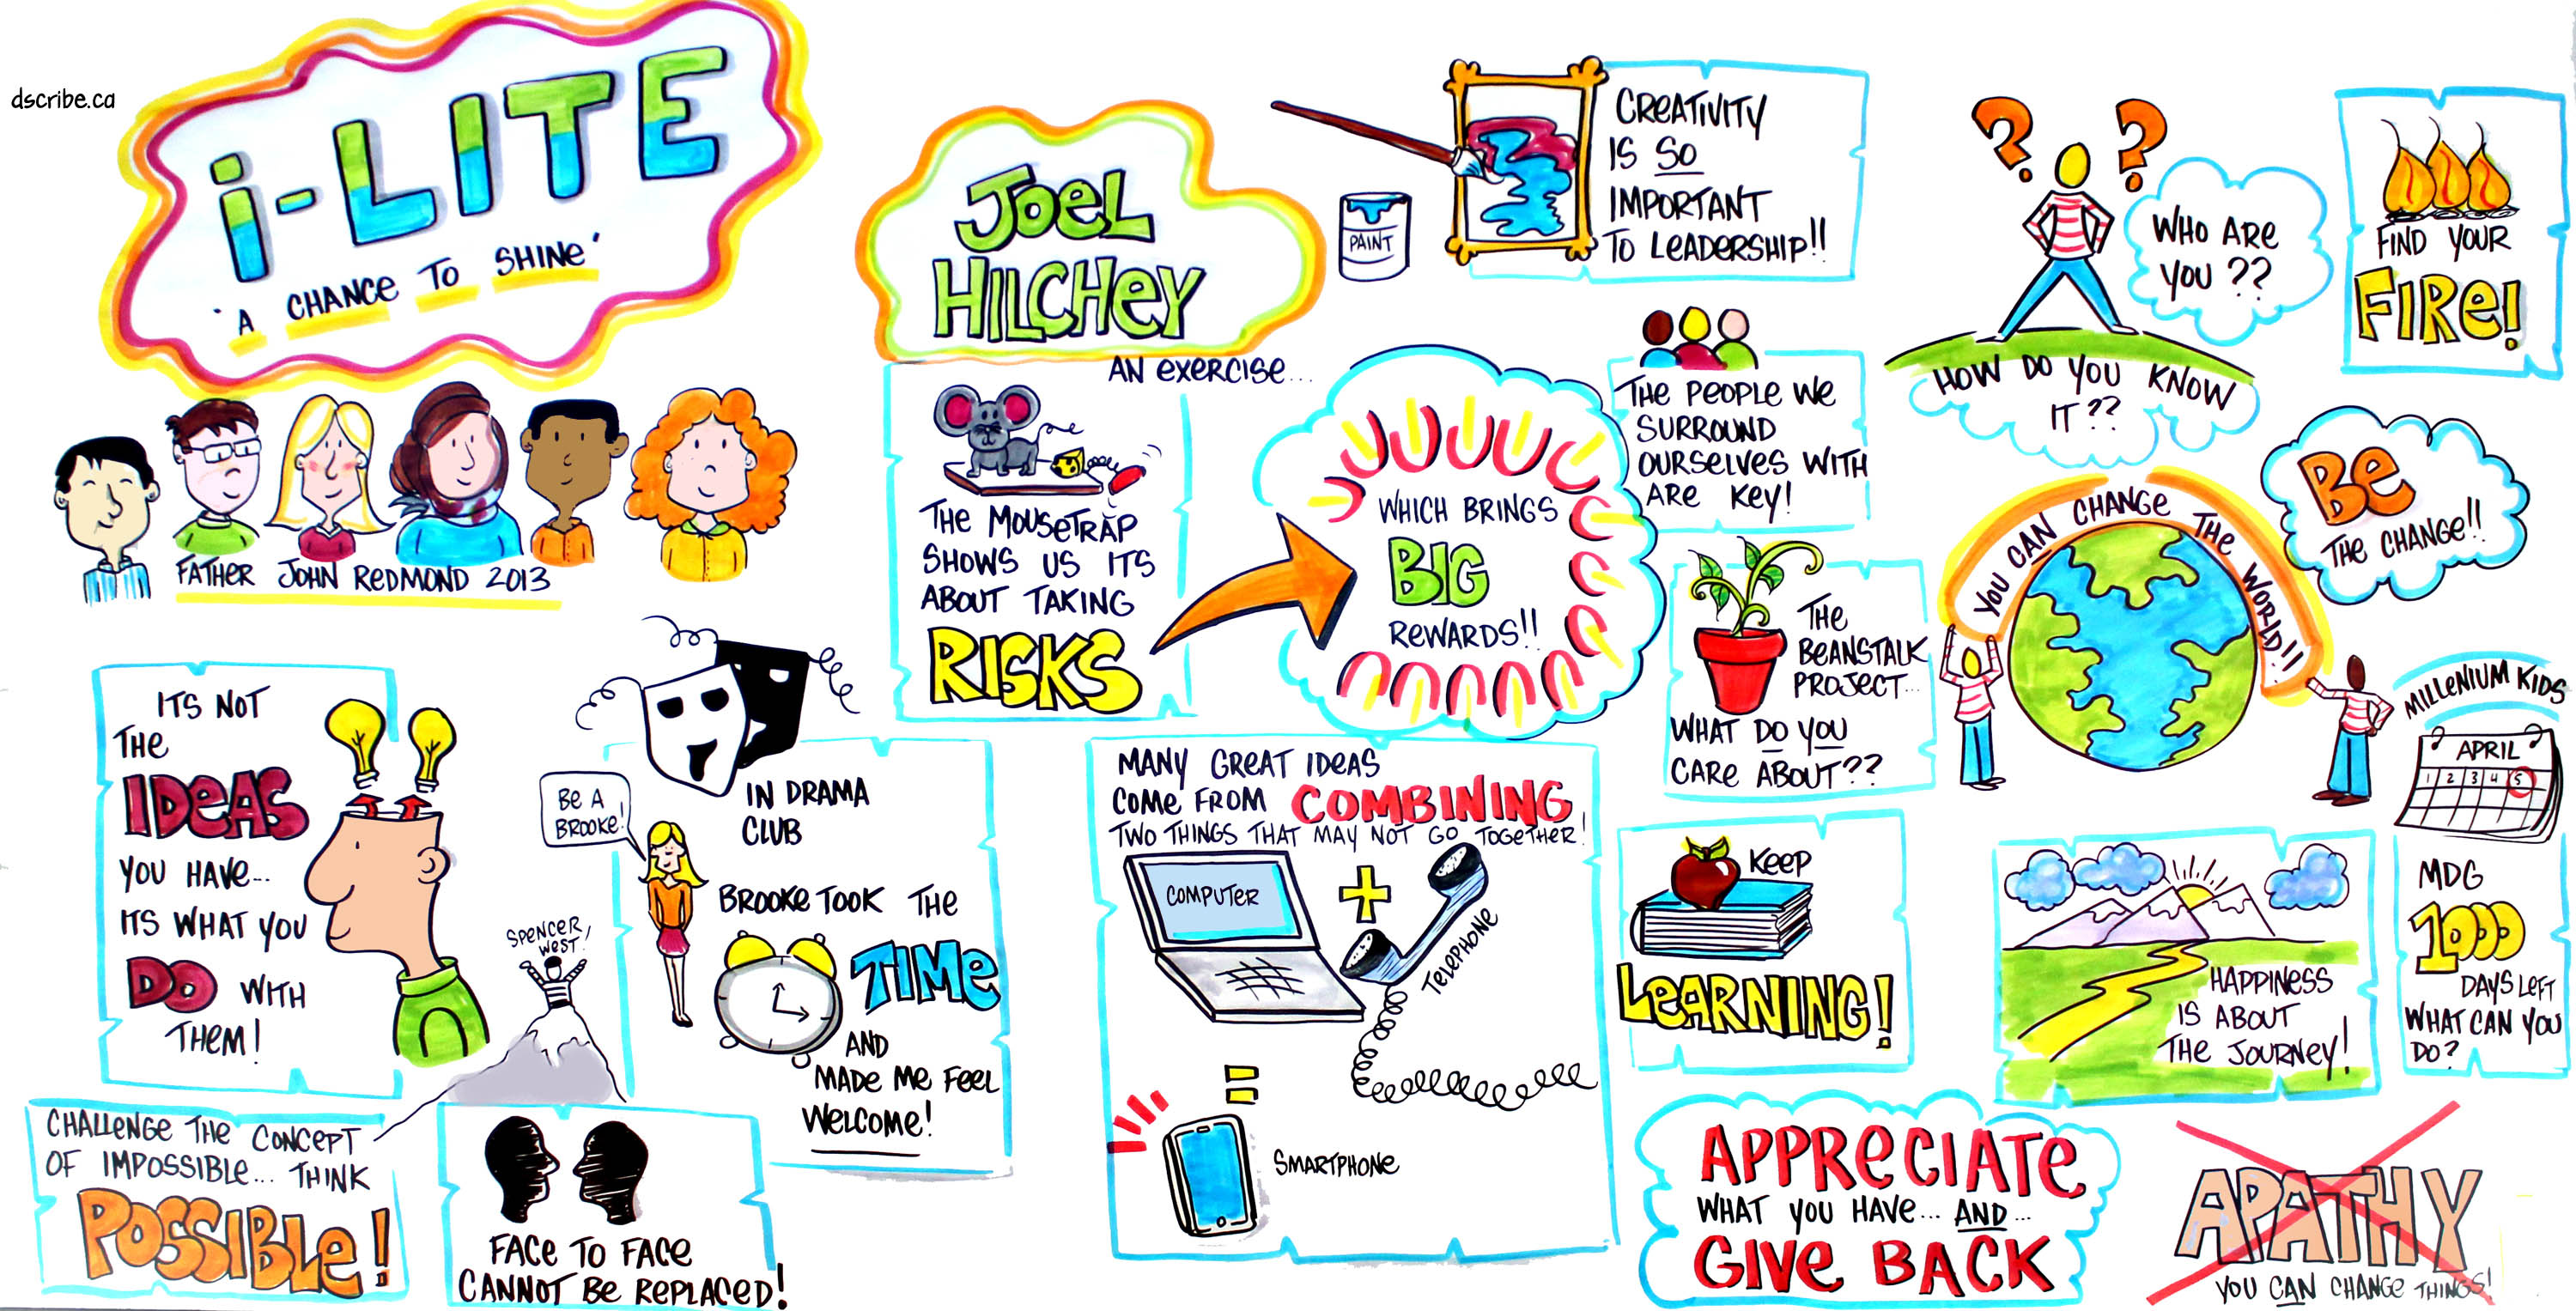 dscribe.ca
i-LITE
'A CHANCE TO SHINE'
FATHER JOHN REDMOND 2013
ITS NOT
THE
IDEAS
YOU HAVE...
ITS WHAT YOU
DO WITH
THEM!
CHALLENGE THE CONCEPT
OF IMPOSSIBLE... THINK
POSSIBLE!
SPENCER
WEST!
BE A
BROOKE!
IN DRAMA
CLUB
BROOKE TOOK THE
TIME
AND
MADE ME FEEL
WELCOME!
FACE TO FACE
CANNOT BE REPLACED!
JOEL
HILCHEY
AN EXERCISE...
THE MOUSETRAP
SHOWS US ITS
ABOUT TAKING
RISKS
WHICH BRINGS
BIG
REWARDS!!
PAINT
CREATIVITY
IS SO
IMPORTANT
TO LEADERSHIP!!
THE PEOPLE WE
SURROUND
OURSELVES WITH
ARE KEY!
THE
BEANSTALK
PROJECT...
WHAT DO YOU
CARE ABOUT??
MANY GREAT IDEAS
COME FROM COMBINING
TWO THINGS THAT MAY NOT GO TOGETHER!
COMPUTER
+
TELEPHONE
=
SMARTPHONE
KEEP
LEARNING!
? ?
WHO ARE
YOU??
HOW DO YOU KNOW
IT??
FIND YOUR
FIRE!
YOU CAN CHANGE THE WORLD!!
BE
THE CHANGE!!
MILLENIUM KIDS
APRIL
1 2 3 4 5
MDG
1000
DAYS LEFT
WHAT CAN YOU
DO?
HAPPINESS
IS ABOUT
THE JOURNEY!
APPRECIATE
WHAT YOU HAVE... AND...
GIVE BACK
APATHY
YOU CAN CHANGE THINGS!